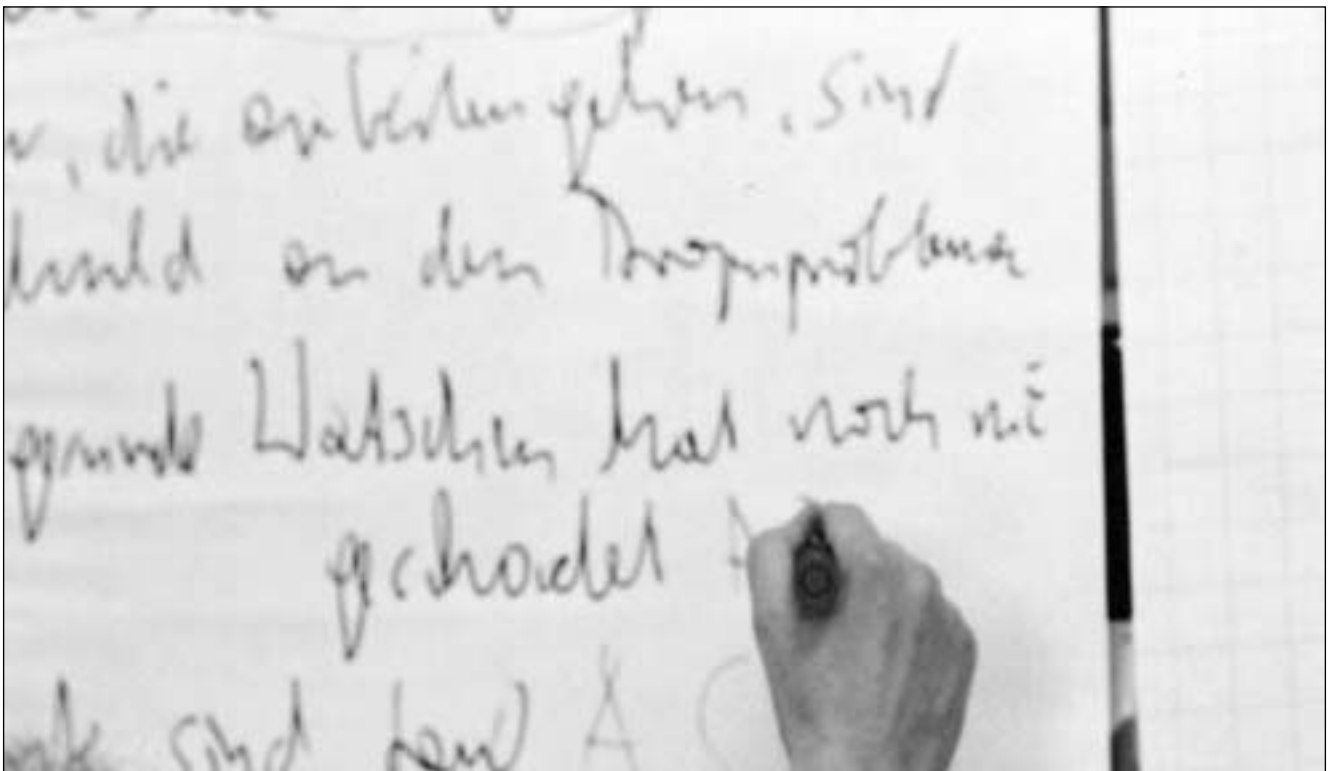 , die arbeiten gehen, sind
an den Drogenproblemen
gsunde Watschen hat noch nie
geschadet
sind faul A